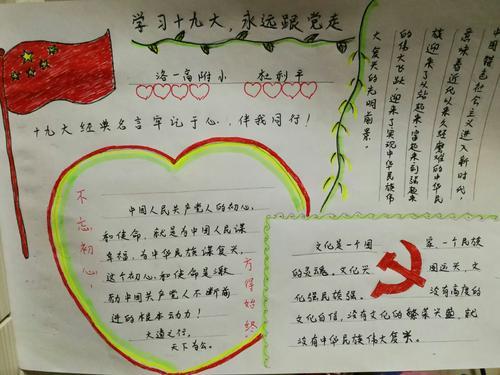 学习十九大，永远跟党走
洛一高附小 杜利平
十九大经典名言牢记于心，伴我同行！
中国特色社会主义进入新时代，
意味着近代以来久经磨难的中华民
族迎来了从站起来富起来到强起来
的伟大飞跃，迎来了实现中华民族伟
大复兴的光明前景。
不忘初心，
中国人民共产党人的初心，
和使命，就是为中国人民谋
幸福，为中华民族谋复兴，
这个初心，和使命是激
励中国共产党人不断前
进的根本动力！
大道之行，
天下为公。
方得始终
文化是一个国家、一个民族
的灵魂，文化兴国运兴，文
化强民族强。没有高度的
文化自信，没有文化的繁荣兴盛，就
没有中华民族伟大复兴。